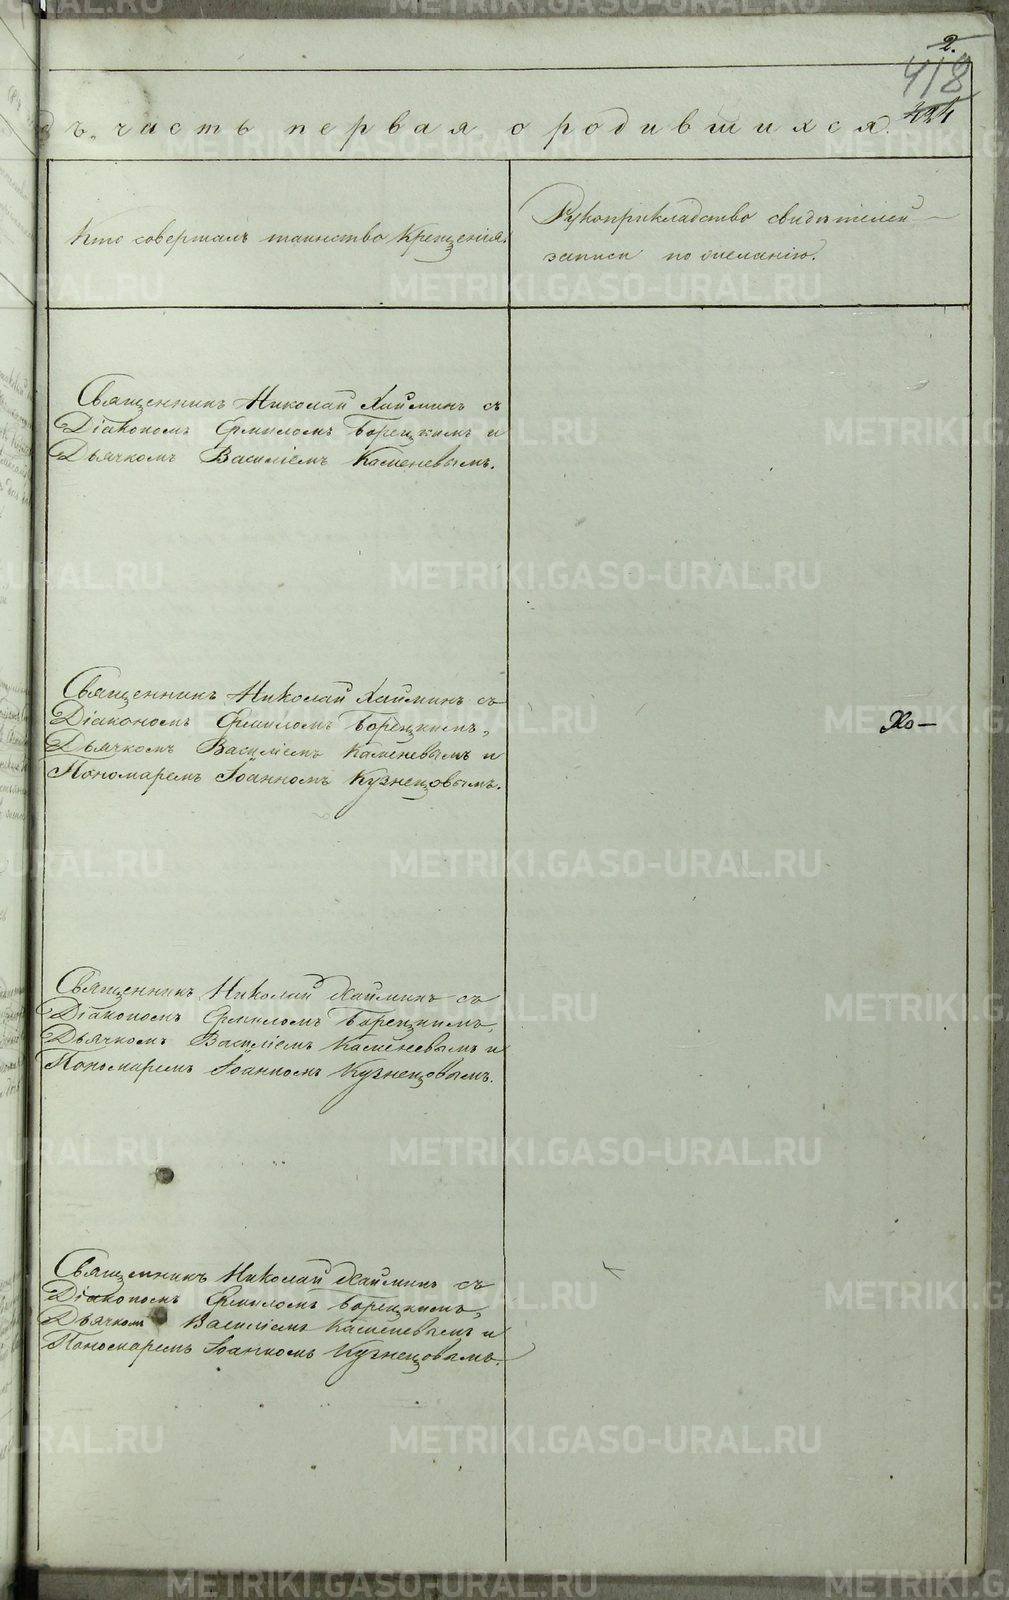 2.
418
421
дъ, часть первая о родившихся.
Кто совершалъ таинство Крещенія.
Рукоприкладство свидѣтелей
записи по желанію.
Священникъ Николай Хайминъ съ
Діакономъ Ермиломъ Борецкимъ и
Дьячкомъ Василіемъ Каменевымъ.
Священникъ Николай Хайминъ съ
Діакономъ Ермиломъ Борецкимъ,
Дьячкомъ Василіемъ Каменевымъ и
Пономаремъ Іоанномъ Кузнецовымъ.
Священникъ Николай Хайминъ съ
Діакономъ Ермиломъ Борецкимъ,
Дьячкомъ Василіемъ Каменевымъ и
Пономаремъ Іоанномъ Кузнецовымъ.
Священникъ Николай Хайминъ съ
Діакономъ Ермиломъ Борецкимъ,
Дьячкомъ Василіемъ Каменевымъ и
Пономаремъ Іоанномъ Кузнецовымъ.
METRIKI.GASO-URAL.RU